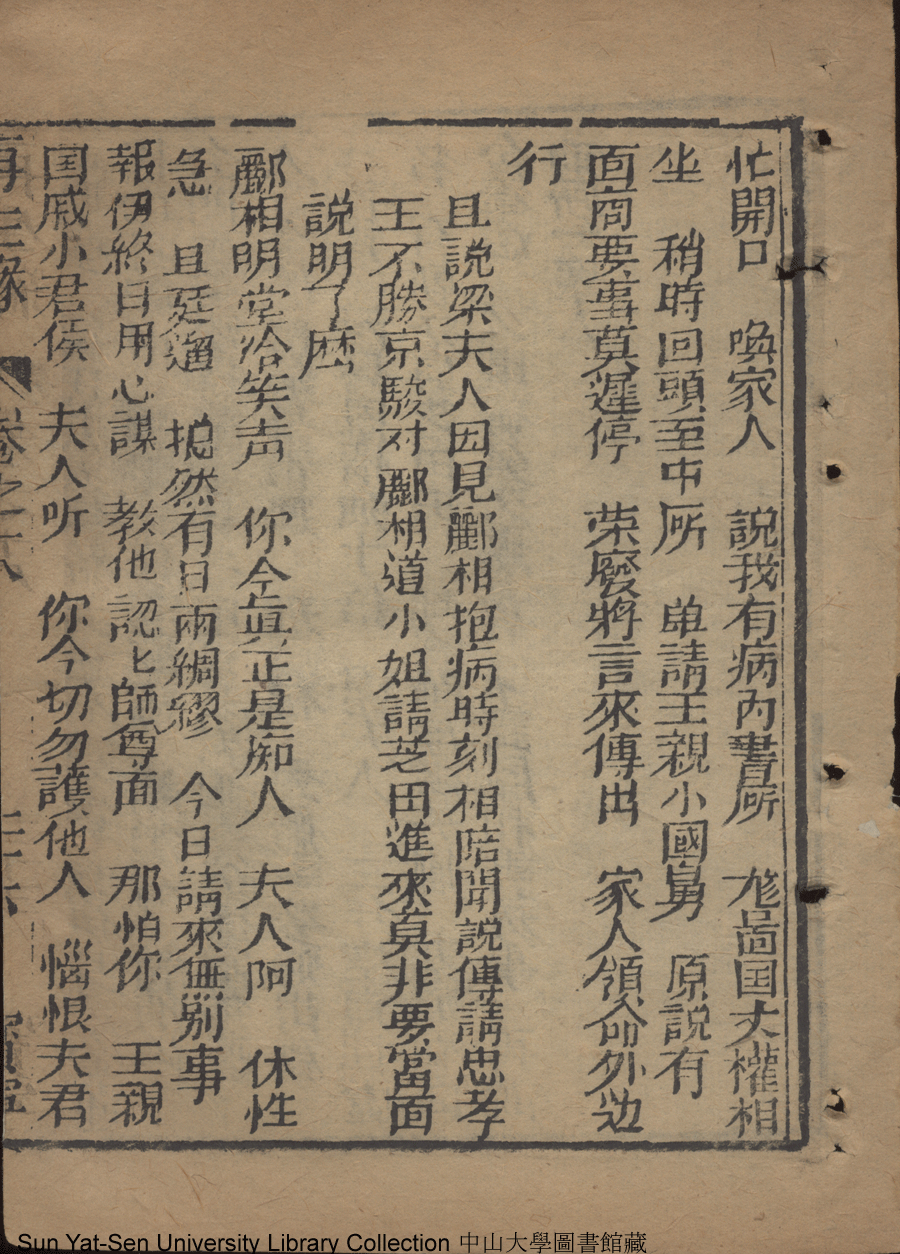 忙開口　喚家人　說我有病內書所　尨啚国丈權相
坐　稍時回頭至中所　单請王親小國舅　原説有
面商要事莫遲停　荣廢將言來傳出　家人領命外边
行
且說梁夫人因見酈相抱病時刻相陪聞說傳請忠孝
王不勝京駿对酈相道小姐請芝田進來莫非要當面
說明了麽
酈相明堂洽笑声　你今眞正是痴人　夫人阿　休性
急　且廷遛　㧞然有日兩綢繆　今日請來無别事
報伊終日用心謀　教他認匕師尊面　那怕你　王親
国戚小君侯　夫人听　你今切勿護他人　惱恨夫君
再生缘　卷之十八
Sun Yat-Sen University Library Collection 中山大學圖書館藏